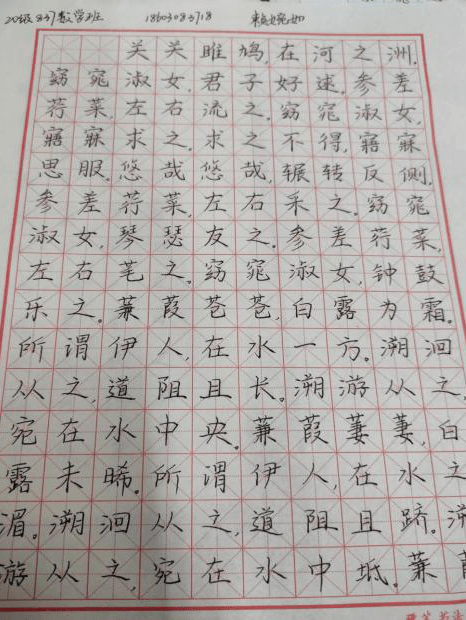 20级837数学班 18603083718 赖婉如
关关雎鸠,在河之洲。
窈窕淑女,君子好逑。参差
荇菜,左右流之。窈窕淑女,
寤寐求之。求之不得,寤寐
思服。悠哉悠哉,辗转反侧。
参差荇菜,左右采之。窈窕
淑女,琴瑟友之。参差荇菜,
左右芼之。窈窕淑女,钟鼓
乐之。蒹葭苍苍,白露为霜。
所谓伊人,在水一方。溯洄
从之,道阻且长。溯游从之,
宛在水中央。蒹葭萋萋,白
露未晞。所谓伊人,在水之
湄。溯洄从之,道阻且跻。溯
游从之,宛在水中坻。蒹葭
硬笔书法